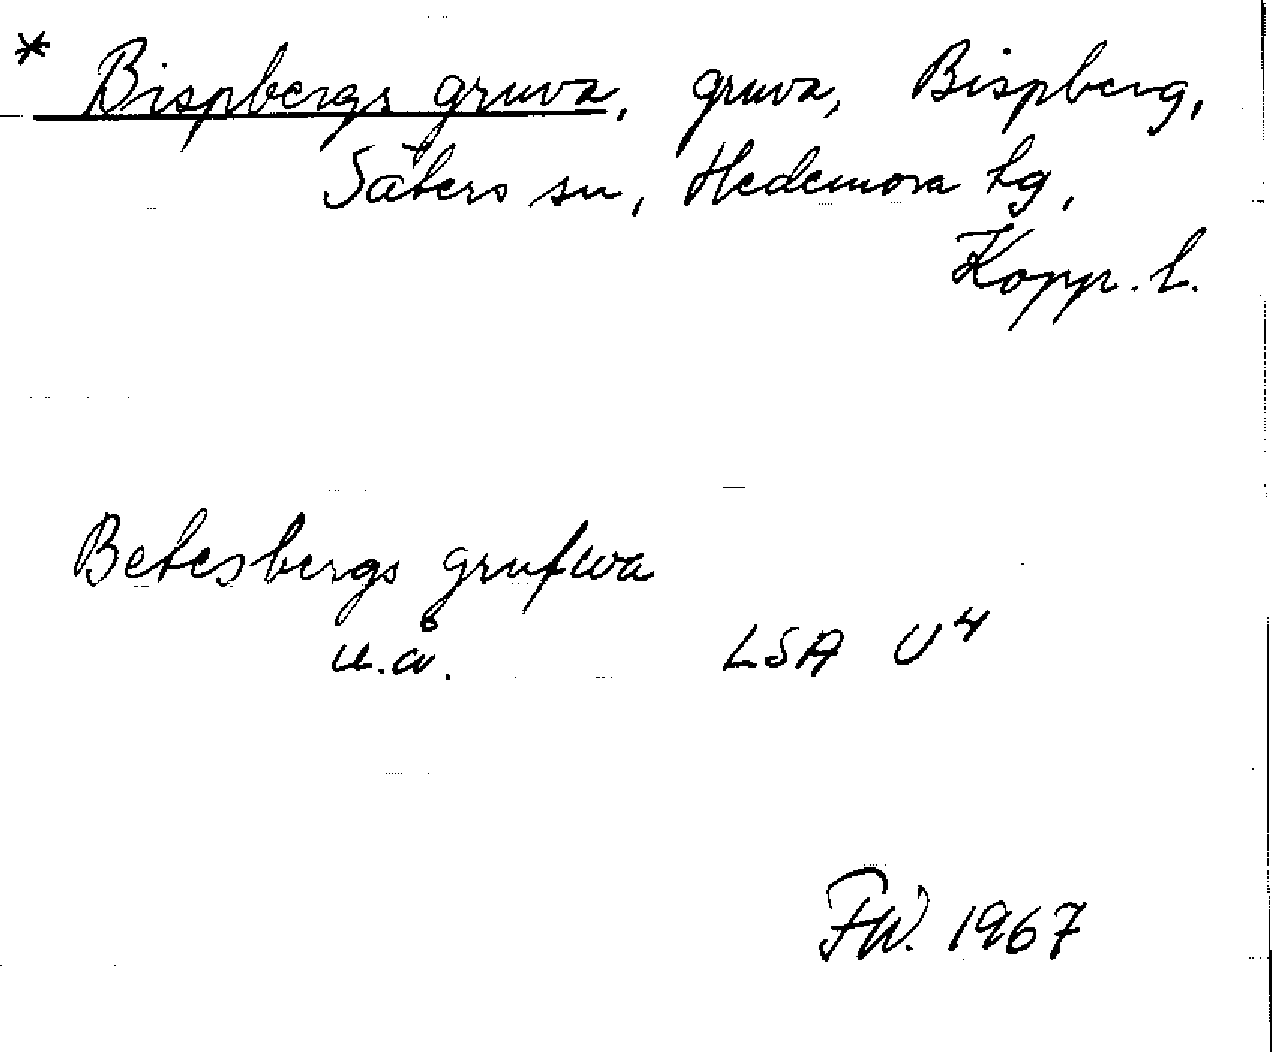 * Bispbergs gruva, gruva, Bispberg,
Säters sn, Hedemora tg,
Kopp. l.
Betesbergs grufwa
u.å. LSA U4
FW. 1967